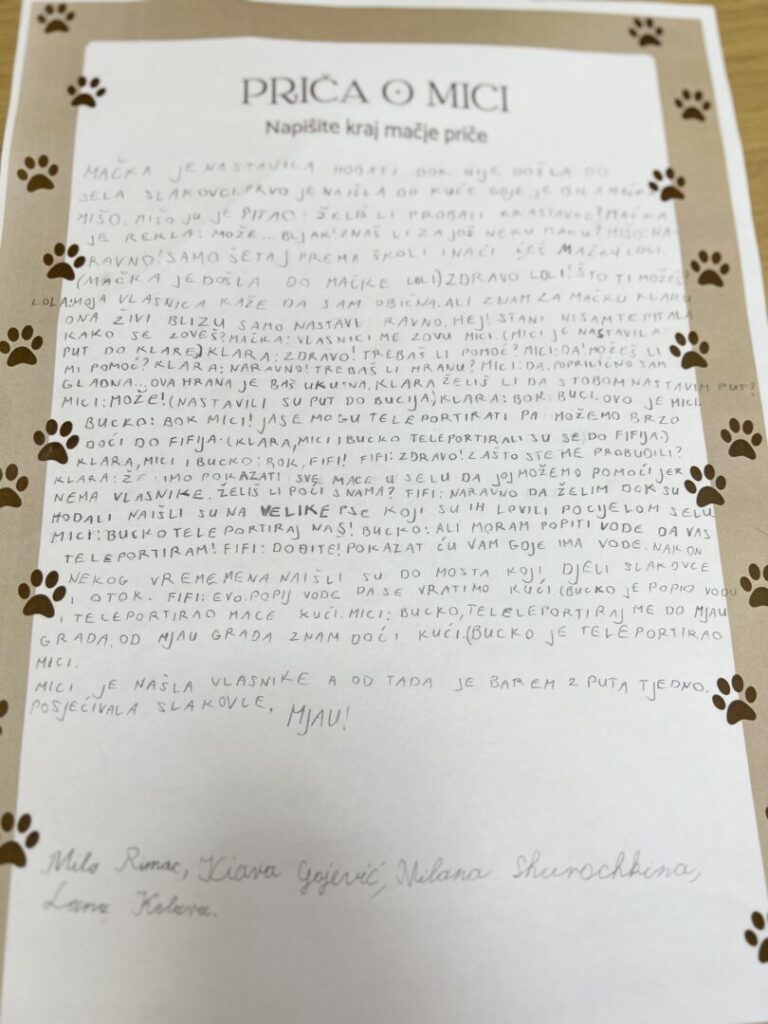 PRIČA O MICI
Napišite kraj mačje priče
MAČKA JE NASTAVILA HODATI DOK NIJE DOŠLA DO
SELA SLAKOVCI. PRVO JE NAIŠLA DO KUĆE GDJE JE BILA MAČKA
MIŠO. MIŠO JU JE PITAO: ŽELIŠ LI PROBATI KRASTAVAC? MAČKA
JE REKLA: MOŽE... BLJAK! ZNAŠ LI ZA JOŠ NEKU MACU? MIŠO: NA-
RAVNO! SAMO ŠETAJ PREMA ŠKOLI I NAĆI ĆEŠ MAČKU LOLI.
(MAČKA JE DOŠLA DO MAČKE LOLI) ZDRAVO LOLI! ŠTO TI MOŽEŠ?
LOLA: MOJA VLASNICA KAŽE DA SAM OBIČNA. ALI ZNAM ZA MAČKU KLARU
ONA ŽIVI BLIZU SAMO NASTAVI RAVNO. HEJ! STANI NISAM TE PITALA
KAKO SE ZOVEŠ? MAČKA: VLASNICI ME ZOVU MICI. (MICI JE NASTAVILA
PUT DO KLARE) KLARA: ZDRAVO! TREBAŠ LI POMOĆ? MICI: DA! MOŽEŠ LI
MI POMOĆ? KLARA: NARAVNO! TREBAŠ LI HRANU? MICI: DA, POPRILIČNO SAM
GLADNA... OVA HRANA JE BAŠ UKUSNA. KLARA ŽELIŠ LI DA S TOBOM NASTAVIM PUT?
MICI: MOŽE! (NASTAVILI SU PUT DO BUCIJA) KLARA: BOK BUCI. OVO JE MICI.
BUCKO: BOK MICI! JA SE MOGU TELEPORTIRATI PA MOŽEMO BRZO
DOĆI DO FIFIJA. (KLARA, MICI I BUCKO TELEPORTIRALI SU SE DO FIFIJA.)
KLARA, MICI I BUCKO: BOK, FIFI! FIFI: ZDRAVO! ZAŠTO STE ME PROBUDILI?
KLARA: ŽELIMO POKAZATI SVE MACE U SELU DA JOJ MOŽEMO POMOĆI JER
NEMA VLASNIKE. ŽELIŠ LI POĆI S NAMA? FIFI: NARAVNO DA ŽELIM DOK SU
HODALI NAIŠLI SU NA VELIKE PSE KOJI SU IH LOVILI PO CIJELOM SELU.
MICI: BUCKO TELEPORTIRAJ NAS! BUCKO: ALI MORAM POPITI VODE DA VAS
TELEPORTIRAM! FIFI: DOĐITE! POKAZAT ĆU VAM GDJE IMA VODE. NAKON
NEKOG VREMEMENA NAIŠLI SU DO MOSTA KOJI DJELI SLAKOVCE
I OTOK. FIFI: EVO. POPIJ VODE DA SE VRATIMO KUĆI. (BUCKO JE POPIO VODU
I TELEPORTIRAO MACE KUĆI. MICI: BUCKO, TELELEPORTIRAJ ME DO MJAU
GRADA. OD MJAU GRADA ZNAM DOĆI KUĆI. (BUCKO JE TELEPORTIRAO
MICI.
MICI JE NAŠLA VLASNIKE A OD TADA JE BAREM 2 PUTA TJEDNO.
POSJEĆIVALA SLAKOVCE.
MJAU!
Mila Rimac, Kiara Gojević, Milana Shurochkina,
Lana Kolava.